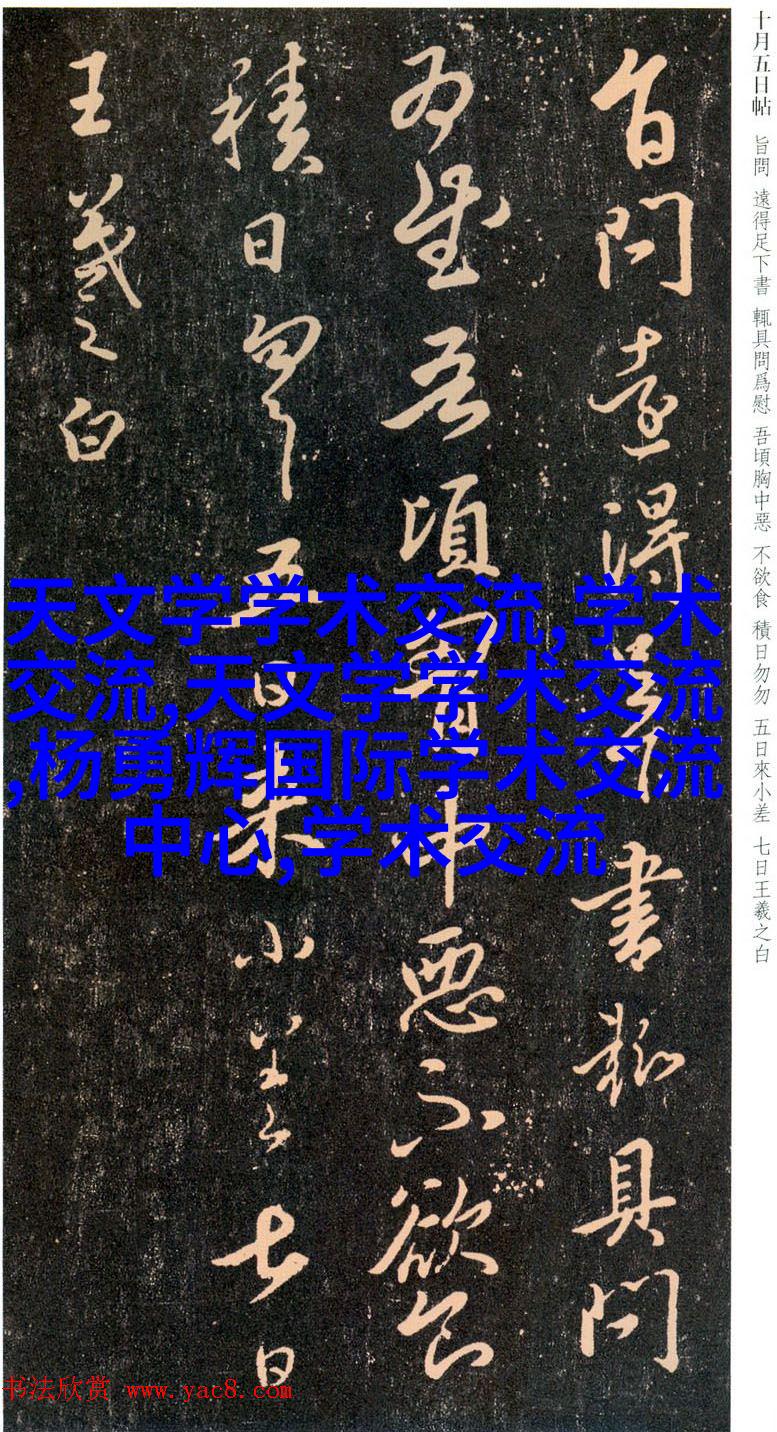 十月五日帖 旨問 遠得足下書 輒具問爲慰 吾頃胸中惡 不欲食 積日勿勿 五日來小差 七日王羲之白
旨問遠得足下書輒具問
爲慰吾頃胸中惡不欲食
積日勿勿五日來小差七日
王羲之白
天文学学术交流,学术
交流,天文学学术交流
,杨勇辉国际学术交流
中心,学术交流
书法欣赏 www.yac8.com